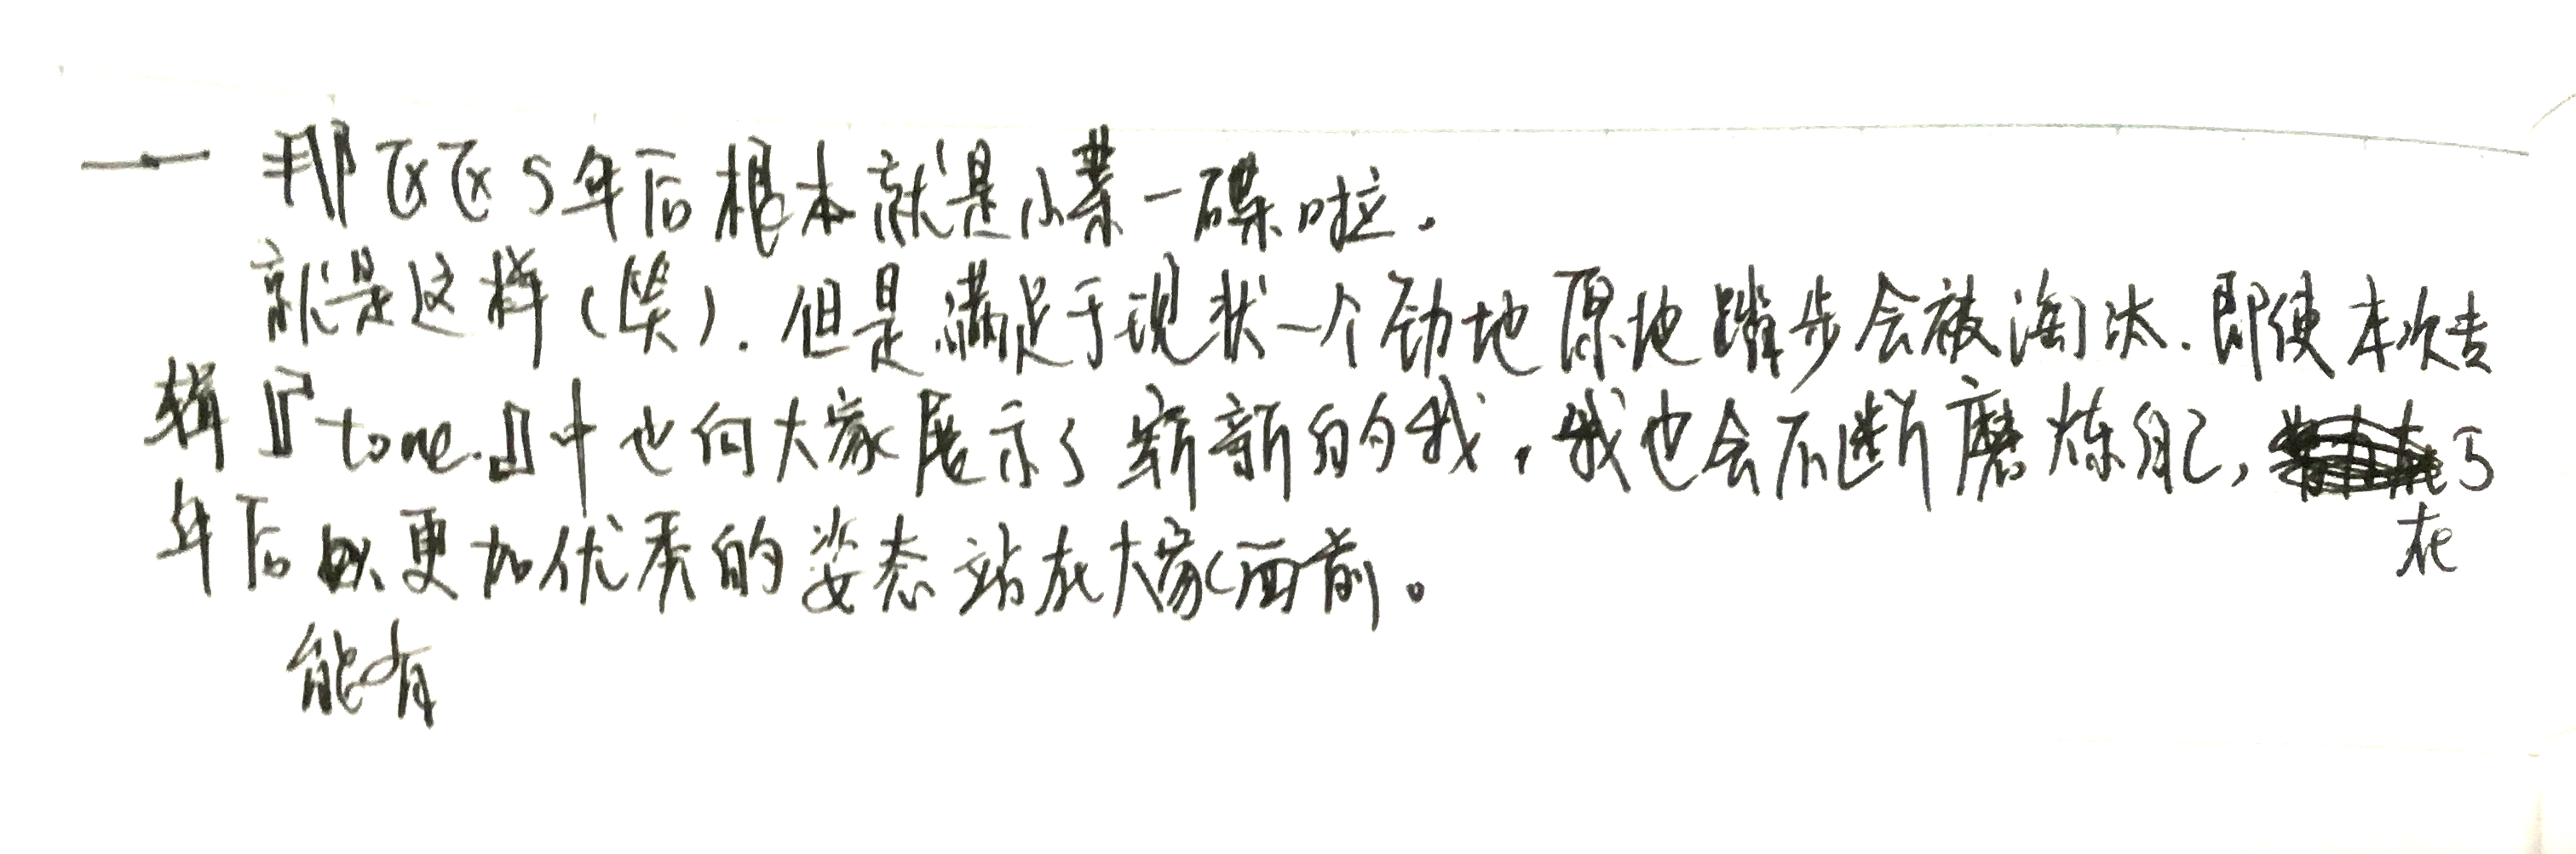 — 那区区5年后根本就是小菜一碟啦.
就是这样(笑). 但是满足于现状一个劲地原地踏步会被淘汰. 即使本次专
辑『tone.』中也向大家展示了崭新的我, 我也会不断磨炼自己, 5
在
年后以更加优秀的姿态站在大家面前。
能有